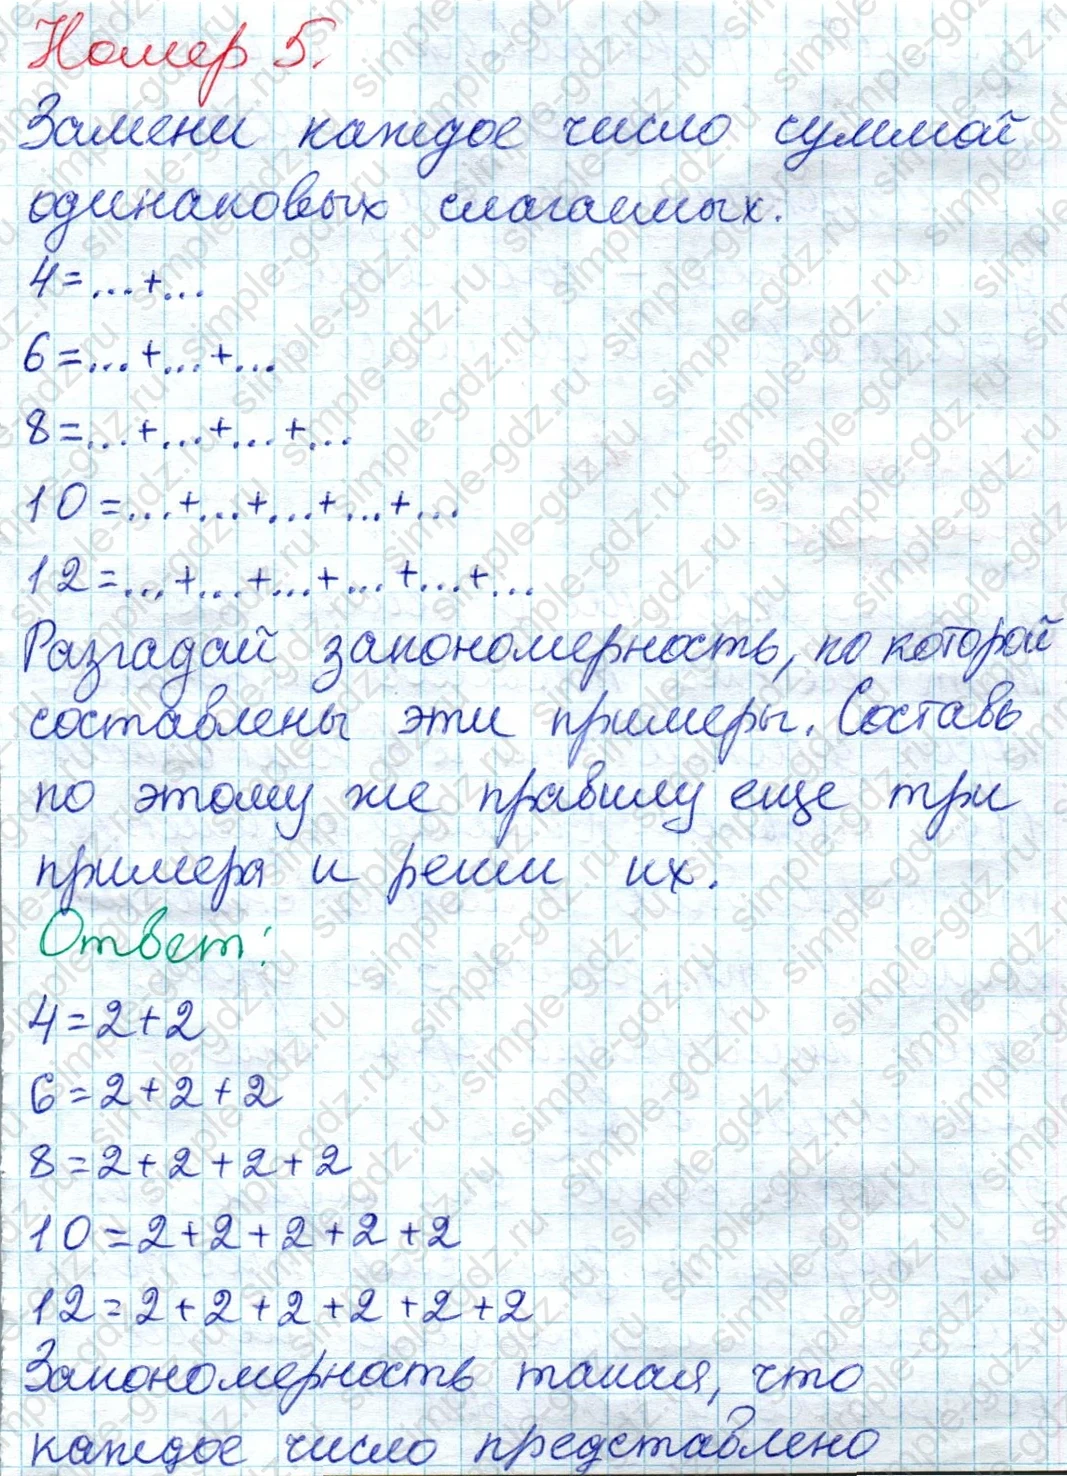 Номер 5.
Замени каждое число суммой
одинаковых слагаемых.
4=...+...
6=...+...+...
8=...+...+...+...
10=...+...+...+...+...
12=...+...+...+...+...+...
Разгадай закономерность, по которой
составлены эти примеры. Составь
по этому же правилу еще три
примера и реши их.
Ответ:
4=2+2
6=2+2+2
8=2+2+2+2
10=2+2+2+2+2
12=2+2+2+2+2+2
Закономерность такая, что
каждое число представлено
simple-gdz.ru